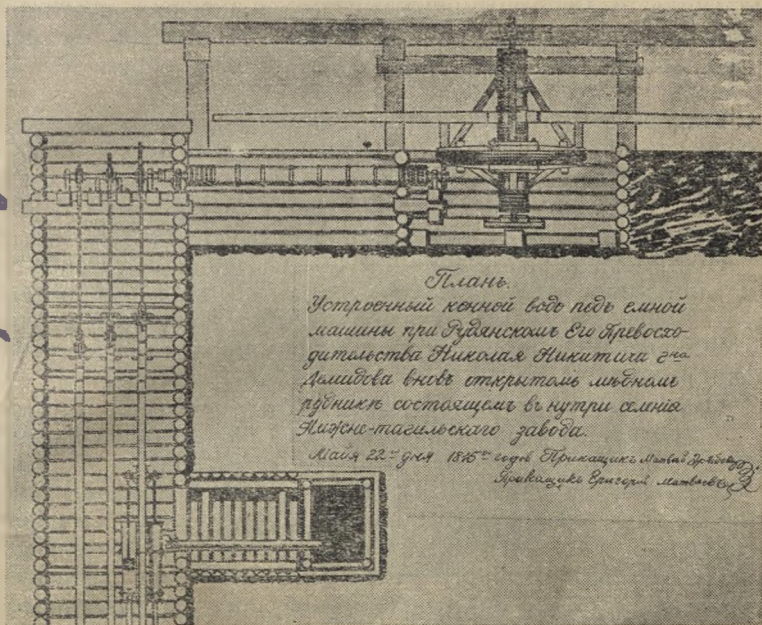 Планъ.
Устроенный конной водо подъ емной
машины при Рудянскомъ Его Превосхо-
дительства Николая Никитича г-на
Демидова вновь открытомъ мѣдномъ
рудникѣ состоящемъ въ нутри селенія
Нижне-тагильскаго завода.
Маія 22-го дня годъ Прикащикъ Матвей
Прикащикъ Григорій Матвѣевъ